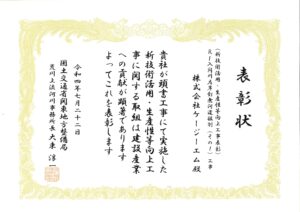 表彰状
（新技術活用・生産性等向上工事表彰）
株式会社ケージーエム殿
貴社が頭書工事にて実施した
新技術活用・生産性等向上工
事に関する取組は建設産業
への貢献が顕著であります
よってこれを表彰します
令和四年七月二十二日
国土交通省関東地方整備局
荒川上流河川事務所長